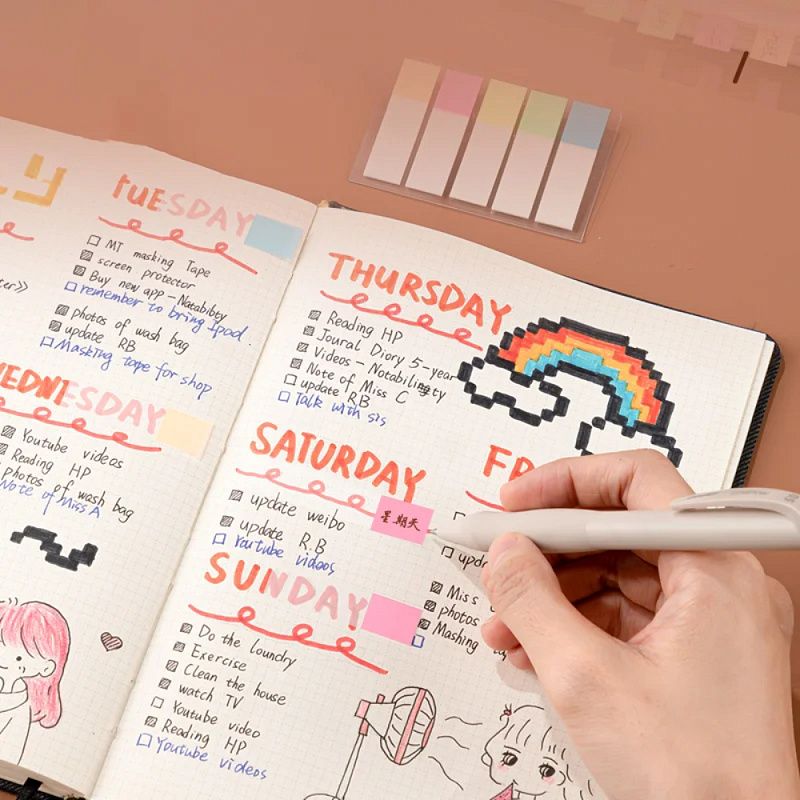 TUESDAY
MT masking Tape
screen protector
Buy new app - Notabibty
remember to bring Ipad.
photos of wash bag
update RB
Masking tape for shop
WEDNESDAY
Youtube videos
Reading HP
photos of wash bag
Note of Miss A
THURSDAY
Reading HP
Joural Diory 5-year
Videos - Notabilingty
Note of Miss C
update RB
Talk with sis
SATURDAY
update weibo
星期天
update R.B
Youtube videos
SUNDAY
Do the Loundry
Exercise
Clean the house
watch TV
Youtube video
Reading HP
Youtube videos
FR
upda
Miss
photos
Mashing